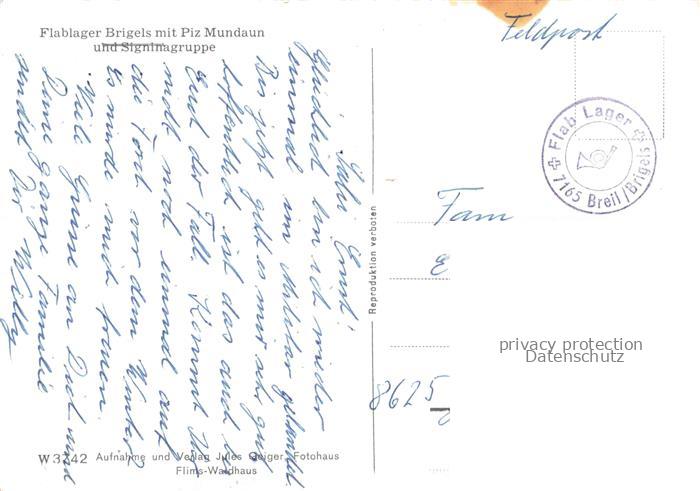 Flablager Brigels mit Piz Mundaun
und Signinagruppe
Feldpost
Flab Lager
7165 Breil/Brigels
Salü Ernst!
Glücklich bin ich wieder
einmal im Militär gelandet
Bis jetzt geht es mir sehr gut
hoffentlich ist das auch bei
Euch der Fall. Kommt Ihr
noch einmal auf
die Ford vor dem Winter
Es würde mich freuen.
Viele Grüsse an Dich und
Deine ganze Familie
sendet Dir Willy
Reproduktion verboten
Fam
E
8625
privacy protection
Datenschutz
W 3242 Aufnahme und Verlag Jules Geiger, Fotohaus
Flims-Waldhaus